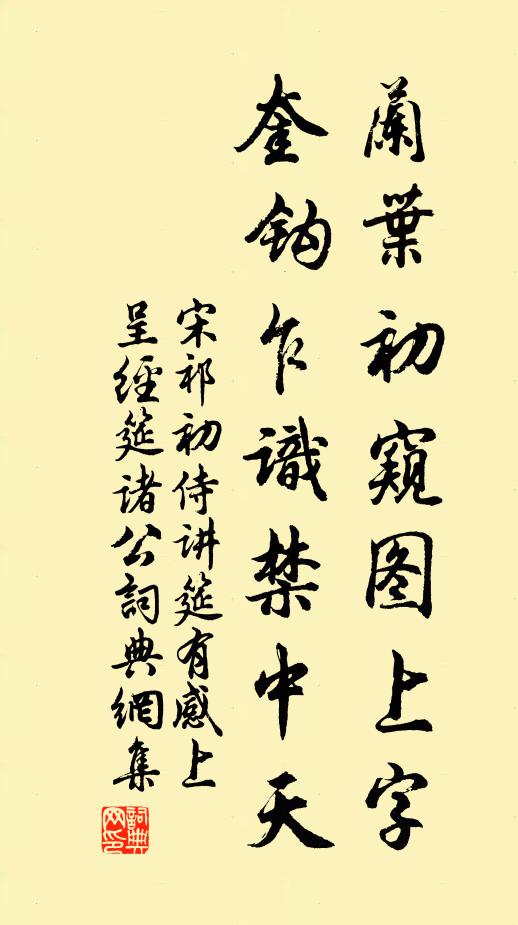 蘭葉初窺图上字
奎鈎乍識禁中天
宋祁初侍讲筵有感上
呈經筵诸公詞典網集
詞典
网印